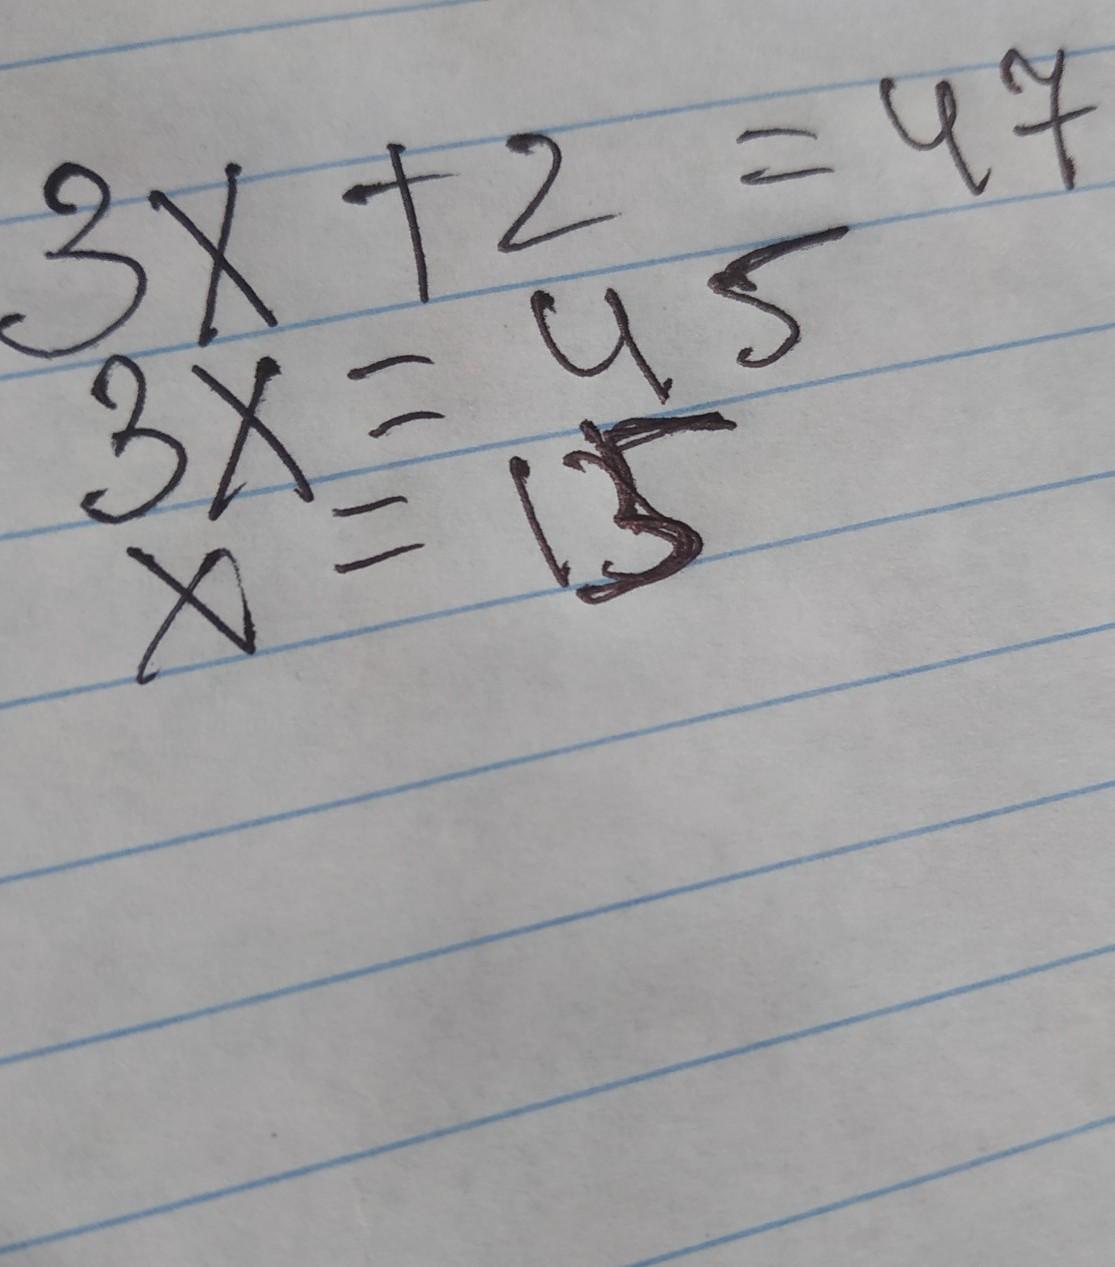 3x + 2 = 47
3x = 45
x = 15